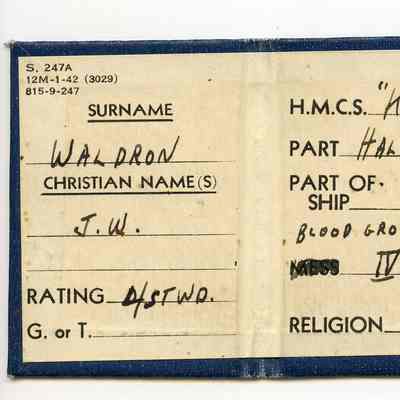 S. 247A
12M-1-42 (3029)
815-9-247
SURNAME
WALDRON
CHRISTIAN NAME(S)
J.W.
RATING D/STWD.
G. or T.
H.M.C.S. "H
PART HAL
PART OF
SHIP
BLOOD GRO
MESS IV
RELIGION